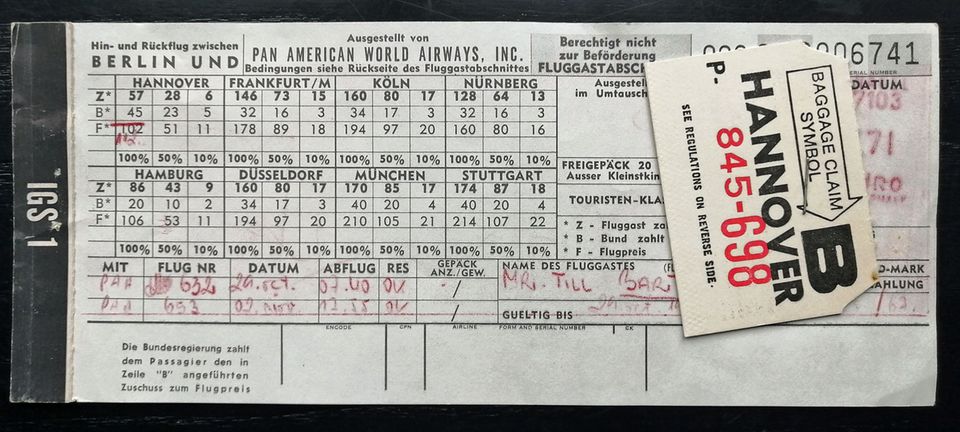 IGS 1
Hin- und Rückflug zwischen
BERLIN UND
Ausgestellt von
PAN AMERICAN WORLD AIRWAYS, INC.
Bedingungen siehe Rückseite des Fluggastabschnittes
Berechtigt nicht
zur Beförderung
FLUGGASTABSCH
6741
SERIAL NUMBER
HANNOVER FRANKFURT/M KÖLN NÜRNBERG
Z* 57 28 6 146 73 15 160 80 17 128 64 13
B* 45 23 5 32 16 3 34 17 3 32 16 3
F* 102 51 11 178 89 18 194 97 20 160 80 16
100% 50% 10% 100% 50% 10% 100% 50% 10% 100% 50% 10%
HAMBURG DÜSSELDORF MÜNCHEN STUTTGART
Z* 86 43 9 160 80 17 170 85 17 174 87 18
B* 20 10 2 34 17 3 40 20 4 40 20 4
F* 106 53 11 194 97 20 210 105 21 214 107 22
100% 50% 10% 100% 50% 10% 100% 50% 10% 100% 50% 10%
Ausgestellt
im Umtausch
DATUM
7103
71
FREIGEPÄCK 20
Ausser Kleinstkin
TOURISTEN-KLA
* Z - Fluggast za
* B - Bund zahlt
* F - Flugpreis
D-MARK
AHLUNG
MIT FLUG NR DATUM ABFLUG RES GEPÄCK ANZ./GEW. NAME DES FLUGGASTES
PAA 652 29. OCT. 07.40 OK / MR. TILL BAR
PAA 653 02. NOV OK / GUELTIG BIS
ENCODE CPN AIRLINE FORM AND SERIAL NUMBER CK
Die Bundesregierung zahlt
dem Passagier den in
Zeile "B" angeführten
Zuschuss zum Flugpreis
BAGGAGE CLAIM
SYMBOL
B
HANNOVER
P- 845-698
SEE REGULATIONS ON REVERSE SIDE.